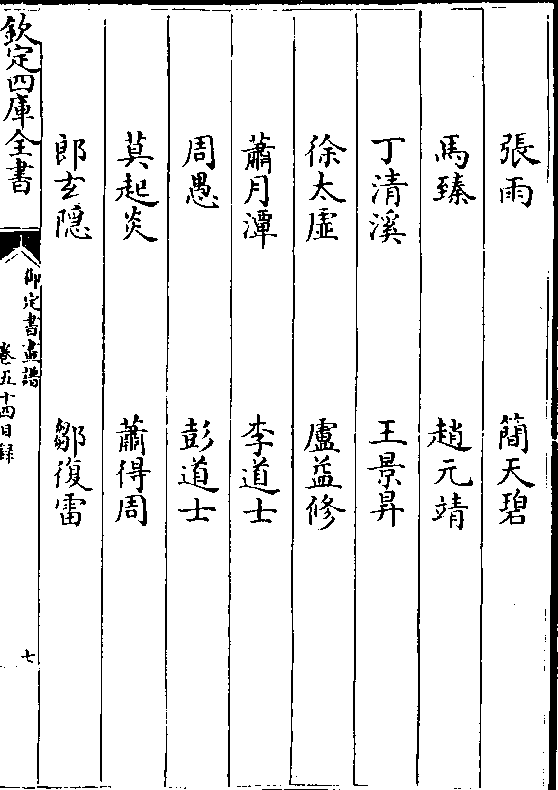 張雨　簡天碧
馬臻　趙元靖
丁清溪　王景昇
徐太虛　盧益修
蕭月潭　李道士
周愚　彭道士
莫起炎　蕭得周
郎玄隱　鄒復雷
欽定四庫全書
御定書畫譜
卷五十四目録
七